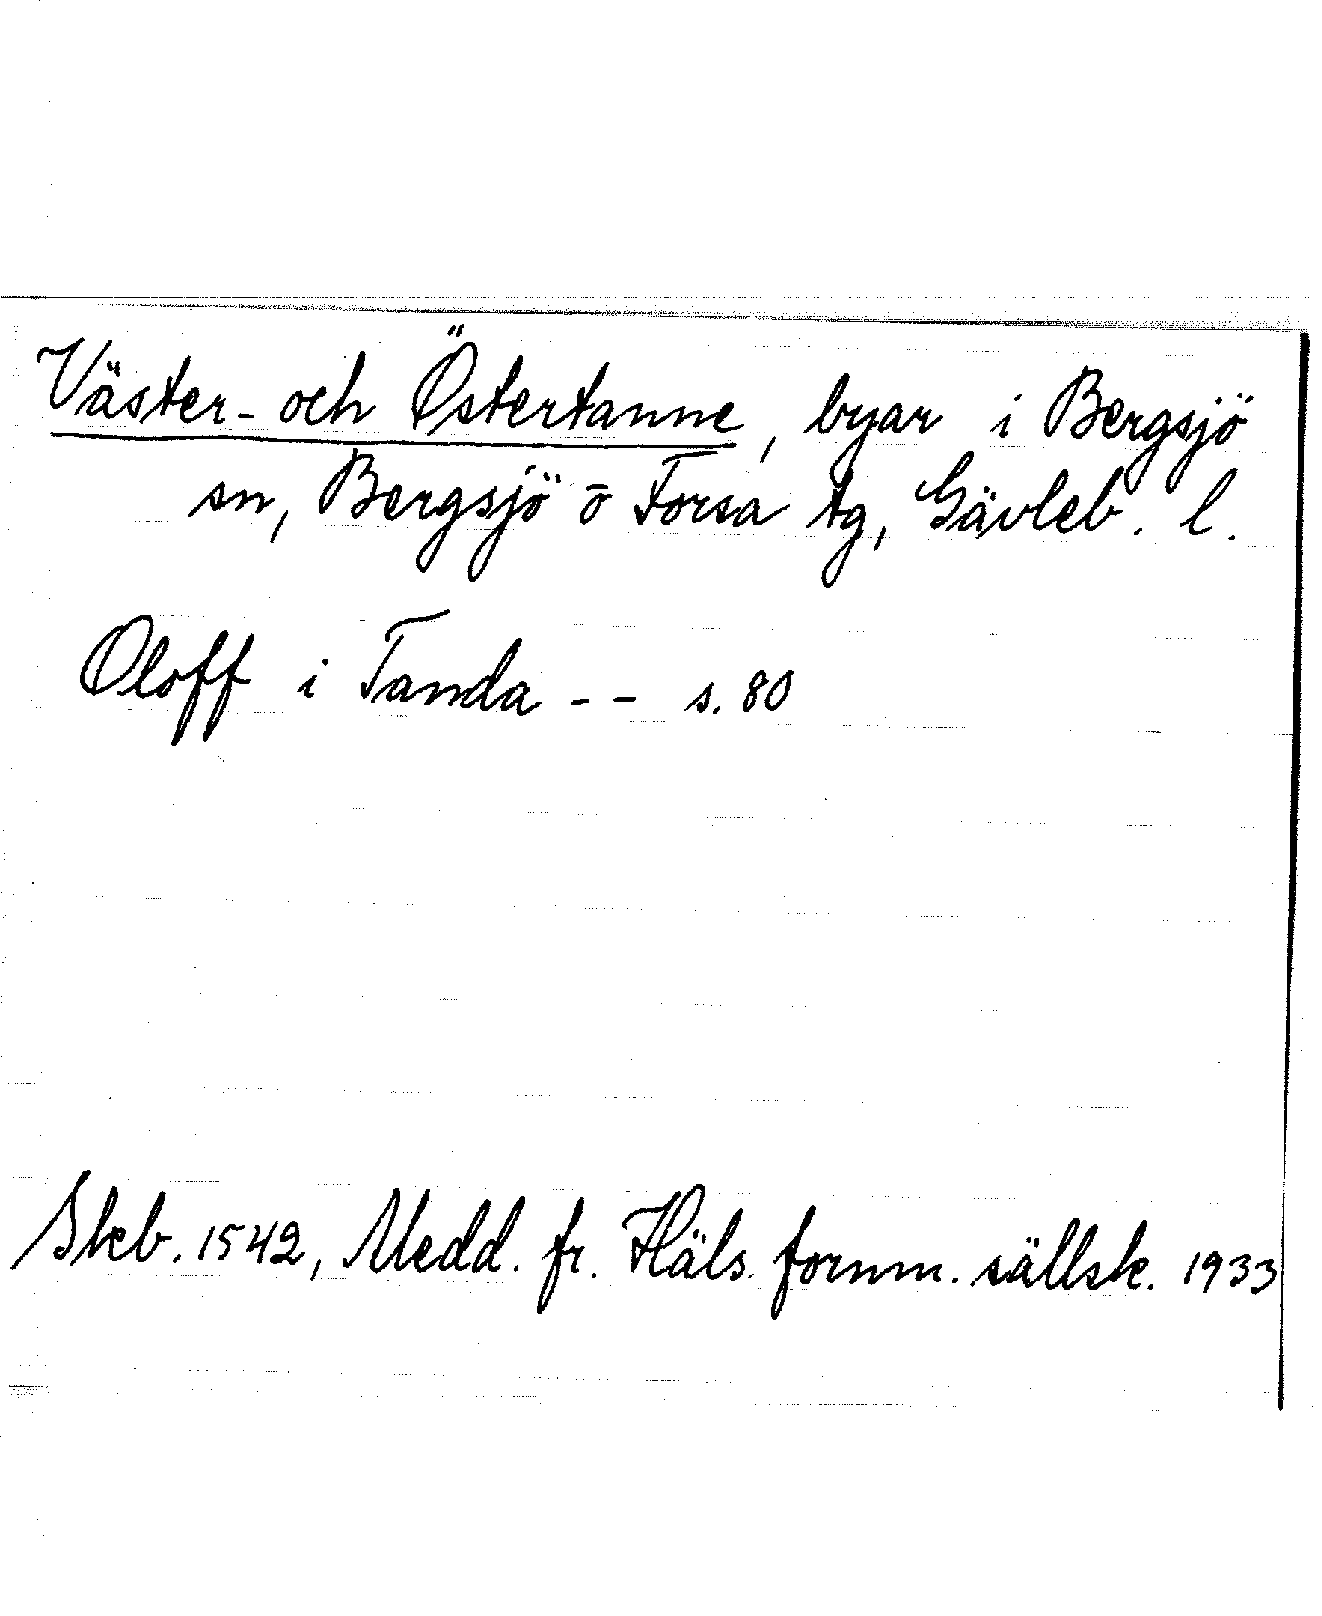 Väster- och Östertanne, byar i Bergsjö
sn, Bergsjö o Forsa tg, Gävleb. l.
Oloff i Tanda -- s. 80
Skb. 1542, Medd. fr. Häls. fornm. sällsk. 1933